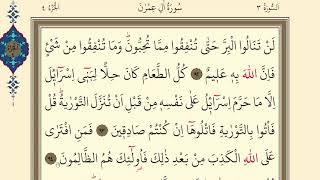 الجزء ٤ سورة آل عمرن السورة ٣
لَنْ تَنَالُوا الْبِرَّ حَتّٰى تُنْفِقُوا مِمَّا تُحِبُّونَۜ وَمَا تُنْفِقُوا مِنْ شَيْءٍ
فَاِنَّ اللّٰهَ بِه۪ عَل۪يمٌ ﴿٩٢﴾ كُلُّ الطَّعَامِ كَانَ حِلًّا لِبَن۪ٓي اِسْرَٓائ۪لَ
اِلَّا مَا حَرَّمَ اِسْرَٓائ۪لُ عَلٰى نَفْسِه۪ مِنْ قَبْلِ اَنْ تُنَزَّلَ التَّوْرٰيةُۜ قُلْ
فَأْتُوا بِالتَّوْرٰيةِ فَاتْلُوهَٓا اِنْ كُنْتُمْ صَادِق۪ينَ ﴿٩٣﴾ فَمَنِ افْتَرٰى
عَلَى اللّٰهِ الْكَذِبَ مِنْ بَعْدِ ذٰلِكَ فَاُو۬لٰٓئِكَ هُمُ الظَّالِمُونَ ﴿٩٤﴾